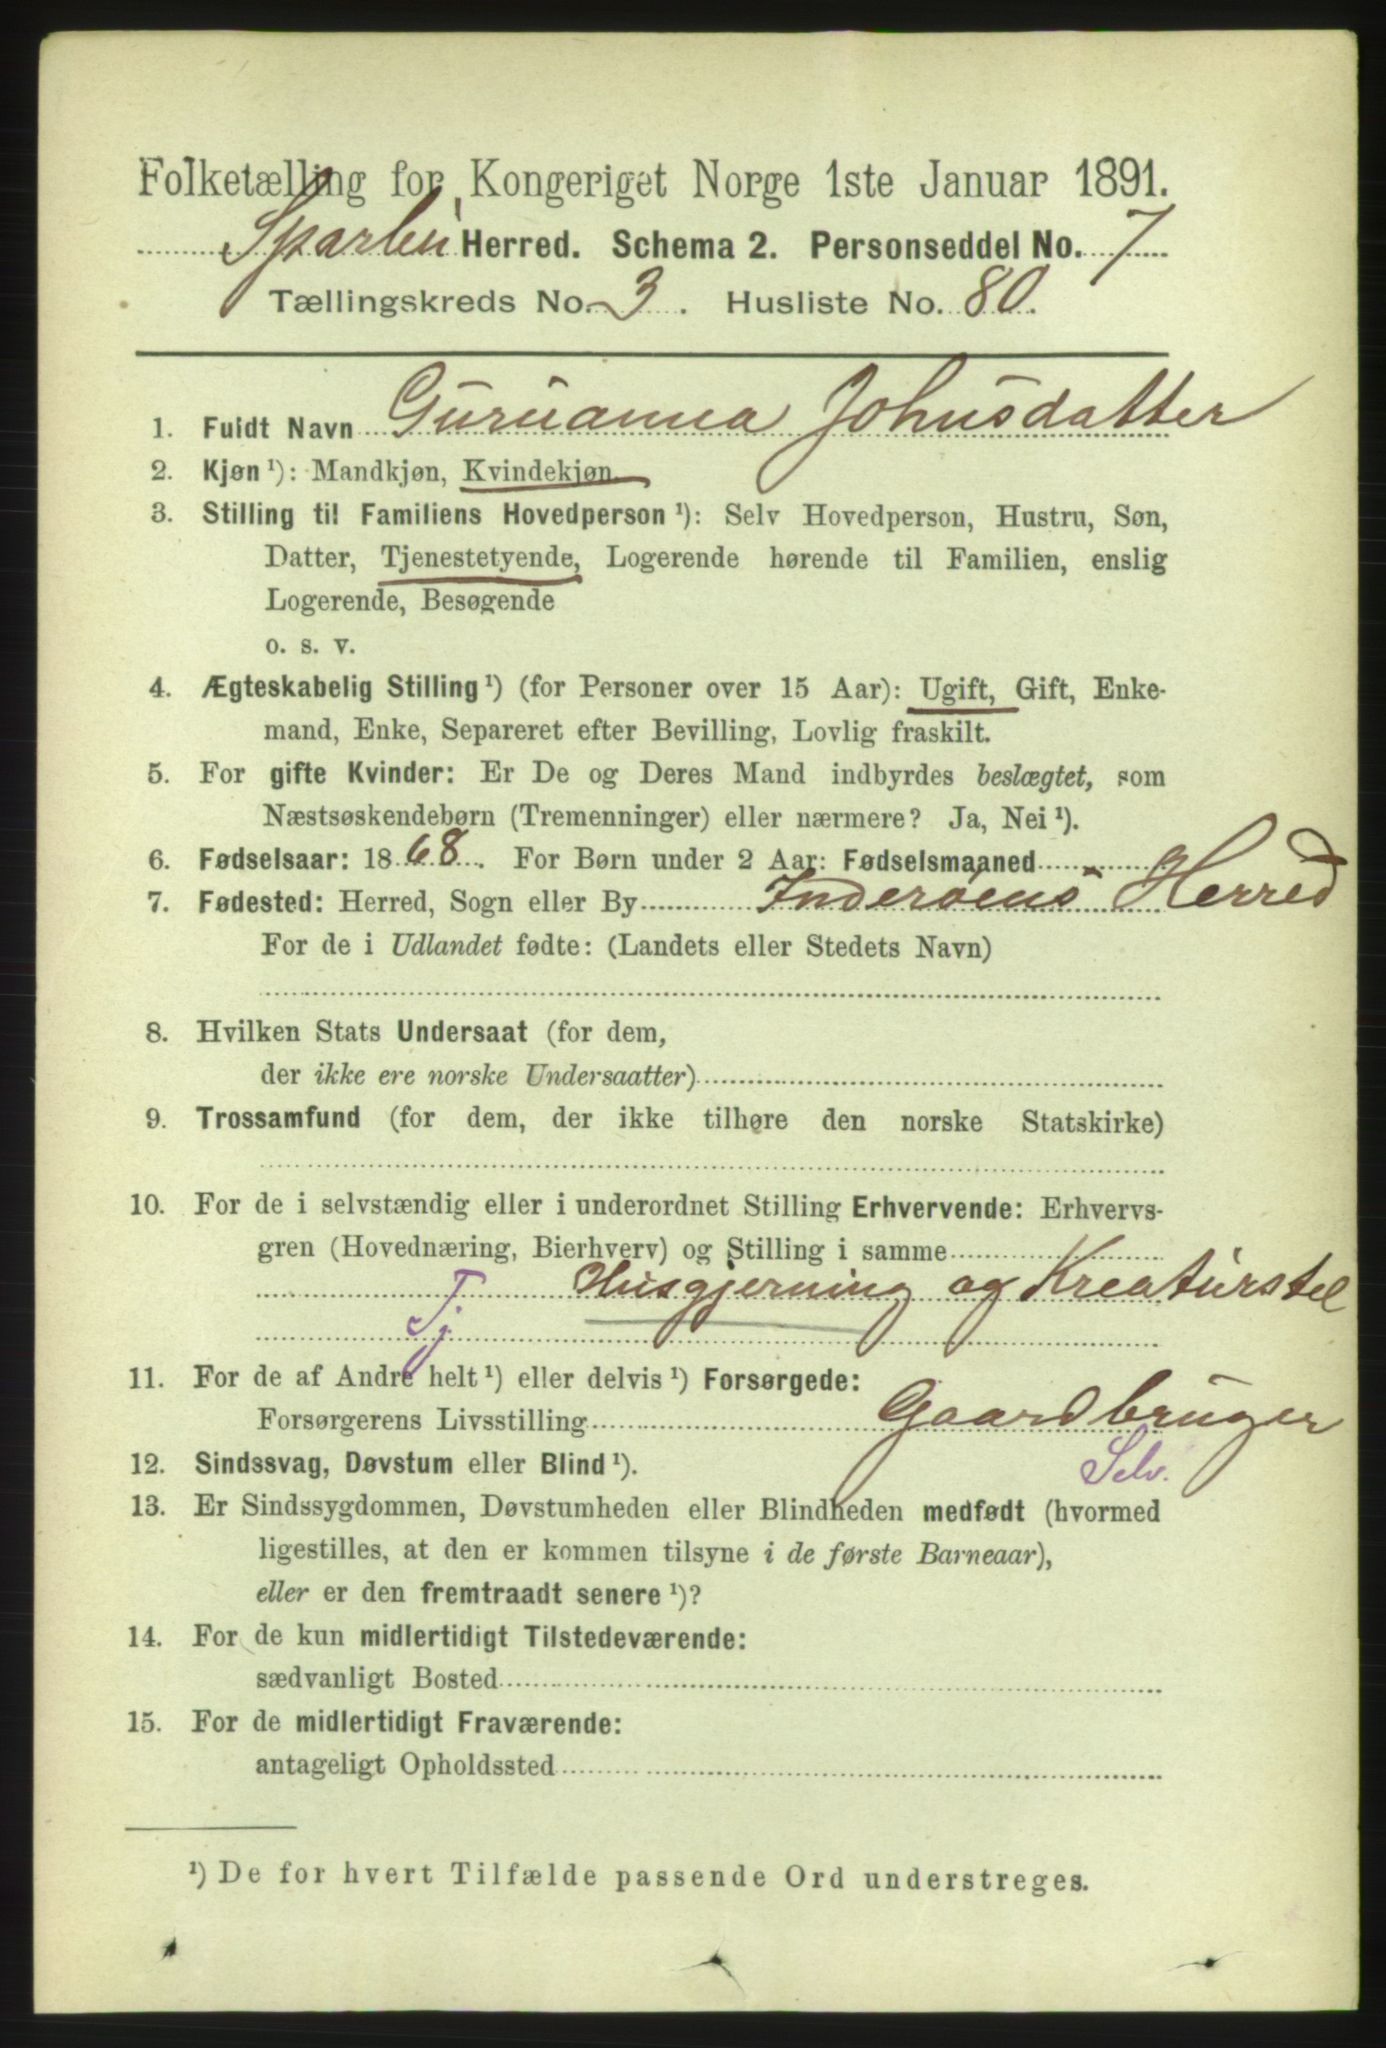 Folketælling for Kongeriget Norge 1ste Januar 1891.
Sparbu Herred. Schema 2. Personseddel No. 7
Tællingskreds No. 3. Husliste No. 80.
1. Fuldt Navn Guruanna Johnsdatter
2. Kjøn ¹): Mandkjøn, Kvindekjøn.
3. Stilling til Familiens Hovedperson ¹): Selv Hovedperson, Hustru, Søn,
Datter, Tjenestetyende, Logerende hørende til Familien, enslig
Logerende, Besøgende
o. s. v.
4. Ægteskabelig Stilling ¹) (for Personer over 15 Aar): Ugift, Gift, Enke-
mand, Enke, Separeret efter Bevilling, Lovlig fraskilt.
5. For gifte Kvinder: Er De og Deres Mand indbyrdes beslægtet, som
Næstsøskendebørn (Tremenninger) eller nærmere? Ja, Nei ¹).
6. Fødselsaar: 1868. For Børn under 2 Aar: Fødselsmaaned
7. Fødested: Herred, Sogn eller By Inderøens Herred
For de i Udlandet fødte: (Landets eller Stedets Navn)
8. Hvilken Stats Undersaat (for dem,
der ikke ere norske Undersaatter)
9. Trossamfund (for dem, der ikke tilhøre den norske Statskirke)
10. For de i selvstændig eller i underordnet Stilling Erhvervende: Erhvervs-
gren (Hovednæring, Bierhverv) og Stilling i samme
Husgjerning og Kreaturstel
Tj.
11. For de af Andre helt ¹) eller delvis ¹) Forsørgede:
Forsørgerens Livsstilling Gaardbruger
12. Sindssvag, Døvstum eller Blind ¹). Selv.
13. Er Sindssygdommen, Døvstumheden eller Blindheden medfødt (hvormed
ligestilles, at den er kommen tilsyne i de første Barneaar),
eller er den fremtraadt senere ¹)?
14. For de kun midlertidigt Tilstedeværende:
sædvanligt Bosted
15. For de midlertidigt Fraværende:
antageligt Opholdssted
¹) De for hvert Tilfælde passende Ord understreges.